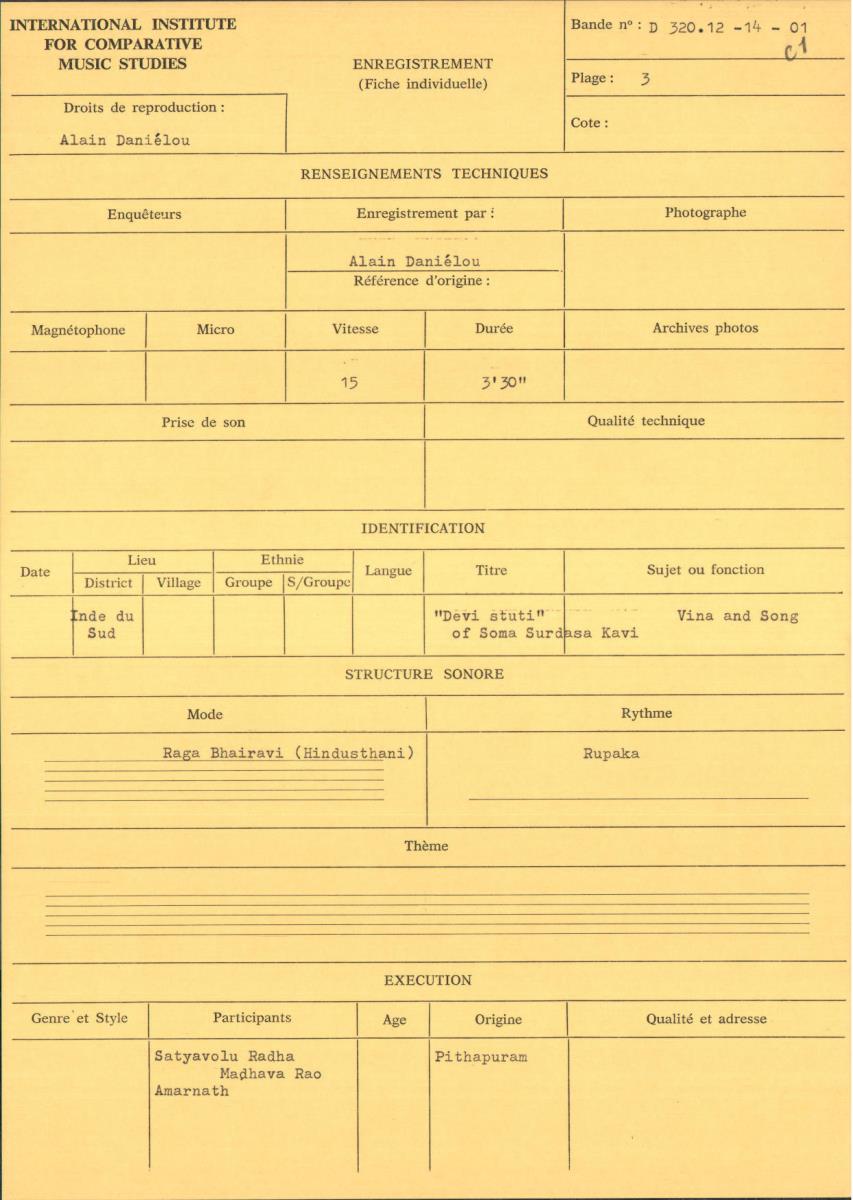 INTERNATIONAL INSTITUTE
FOR COMPARATIVE
MUSIC STUDIES
Droits de reproduction :
Alain Daniélou
ENREGISTREMENT
(Fiche individuelle)
Bande nº : D 320.12 -14 - 01
c1
Plage : 3
Cote :
RENSEIGNEMENTS TECHNIQUES
Enquêteurs
Enregistrement par :
Photographe
Alain Daniélou
Référence d'origine :
Magnétophone Micro Vitesse Durée Archives photos
15 3'30"
Prise de son Qualité technique
IDENTIFICATION
Date Lieu Ethnie Langue Titre Sujet ou fonction
District Village Groupe S/Groupe
Inde du "Devi stuti" Vina and Song
Sud of Soma Surdasa Kavi
STRUCTURE SONORE
Mode Rythme
Raga Bhairavi (Hindusthani) Rupaka
Thème
EXECUTION
Genre et Style Participants Age Origine Qualité et adresse
Satyavolu Radha Pithapuram
Madhava Rao
Amarnath